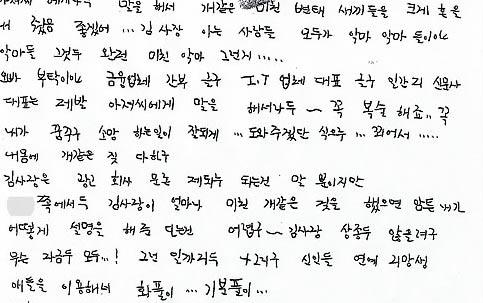 말을 해서 개같은 미친 변태 새끼들을 크게 혼을
줬음 좋겠어 ... 김 사장 아는 사람들 모두가 악마 악마 들이야
악마들 그것두 완전 미친 악마 그런거.....
오빠 부탁이야 금융업체 간부 하구 I.T 업체 대표 하구 일간지 신문사
대표는 제발 아저씨에게 말을 해서라두 ~ 꼭 복수 해죠.. 꼭
내가 꿈꾸구 소망 하는일이 잘되게 ... 도와주겠단 식으루 ... 꾀어서 .....
내몸에 개같은 짓 다하구
김사장은 광고 회사 모든 제되는 말 뿐이지만
쪽에서두 김사장이 얼마나 미친 개같은 것을 했으면 암튼 내가
어떻게 설명을 해 주 김사장 상종두 않을려구
무슨 자금두 모두...! 그넘 신인들 연예 지망생
애들을 이용해서 화풀이 ... 기분풀이 ...